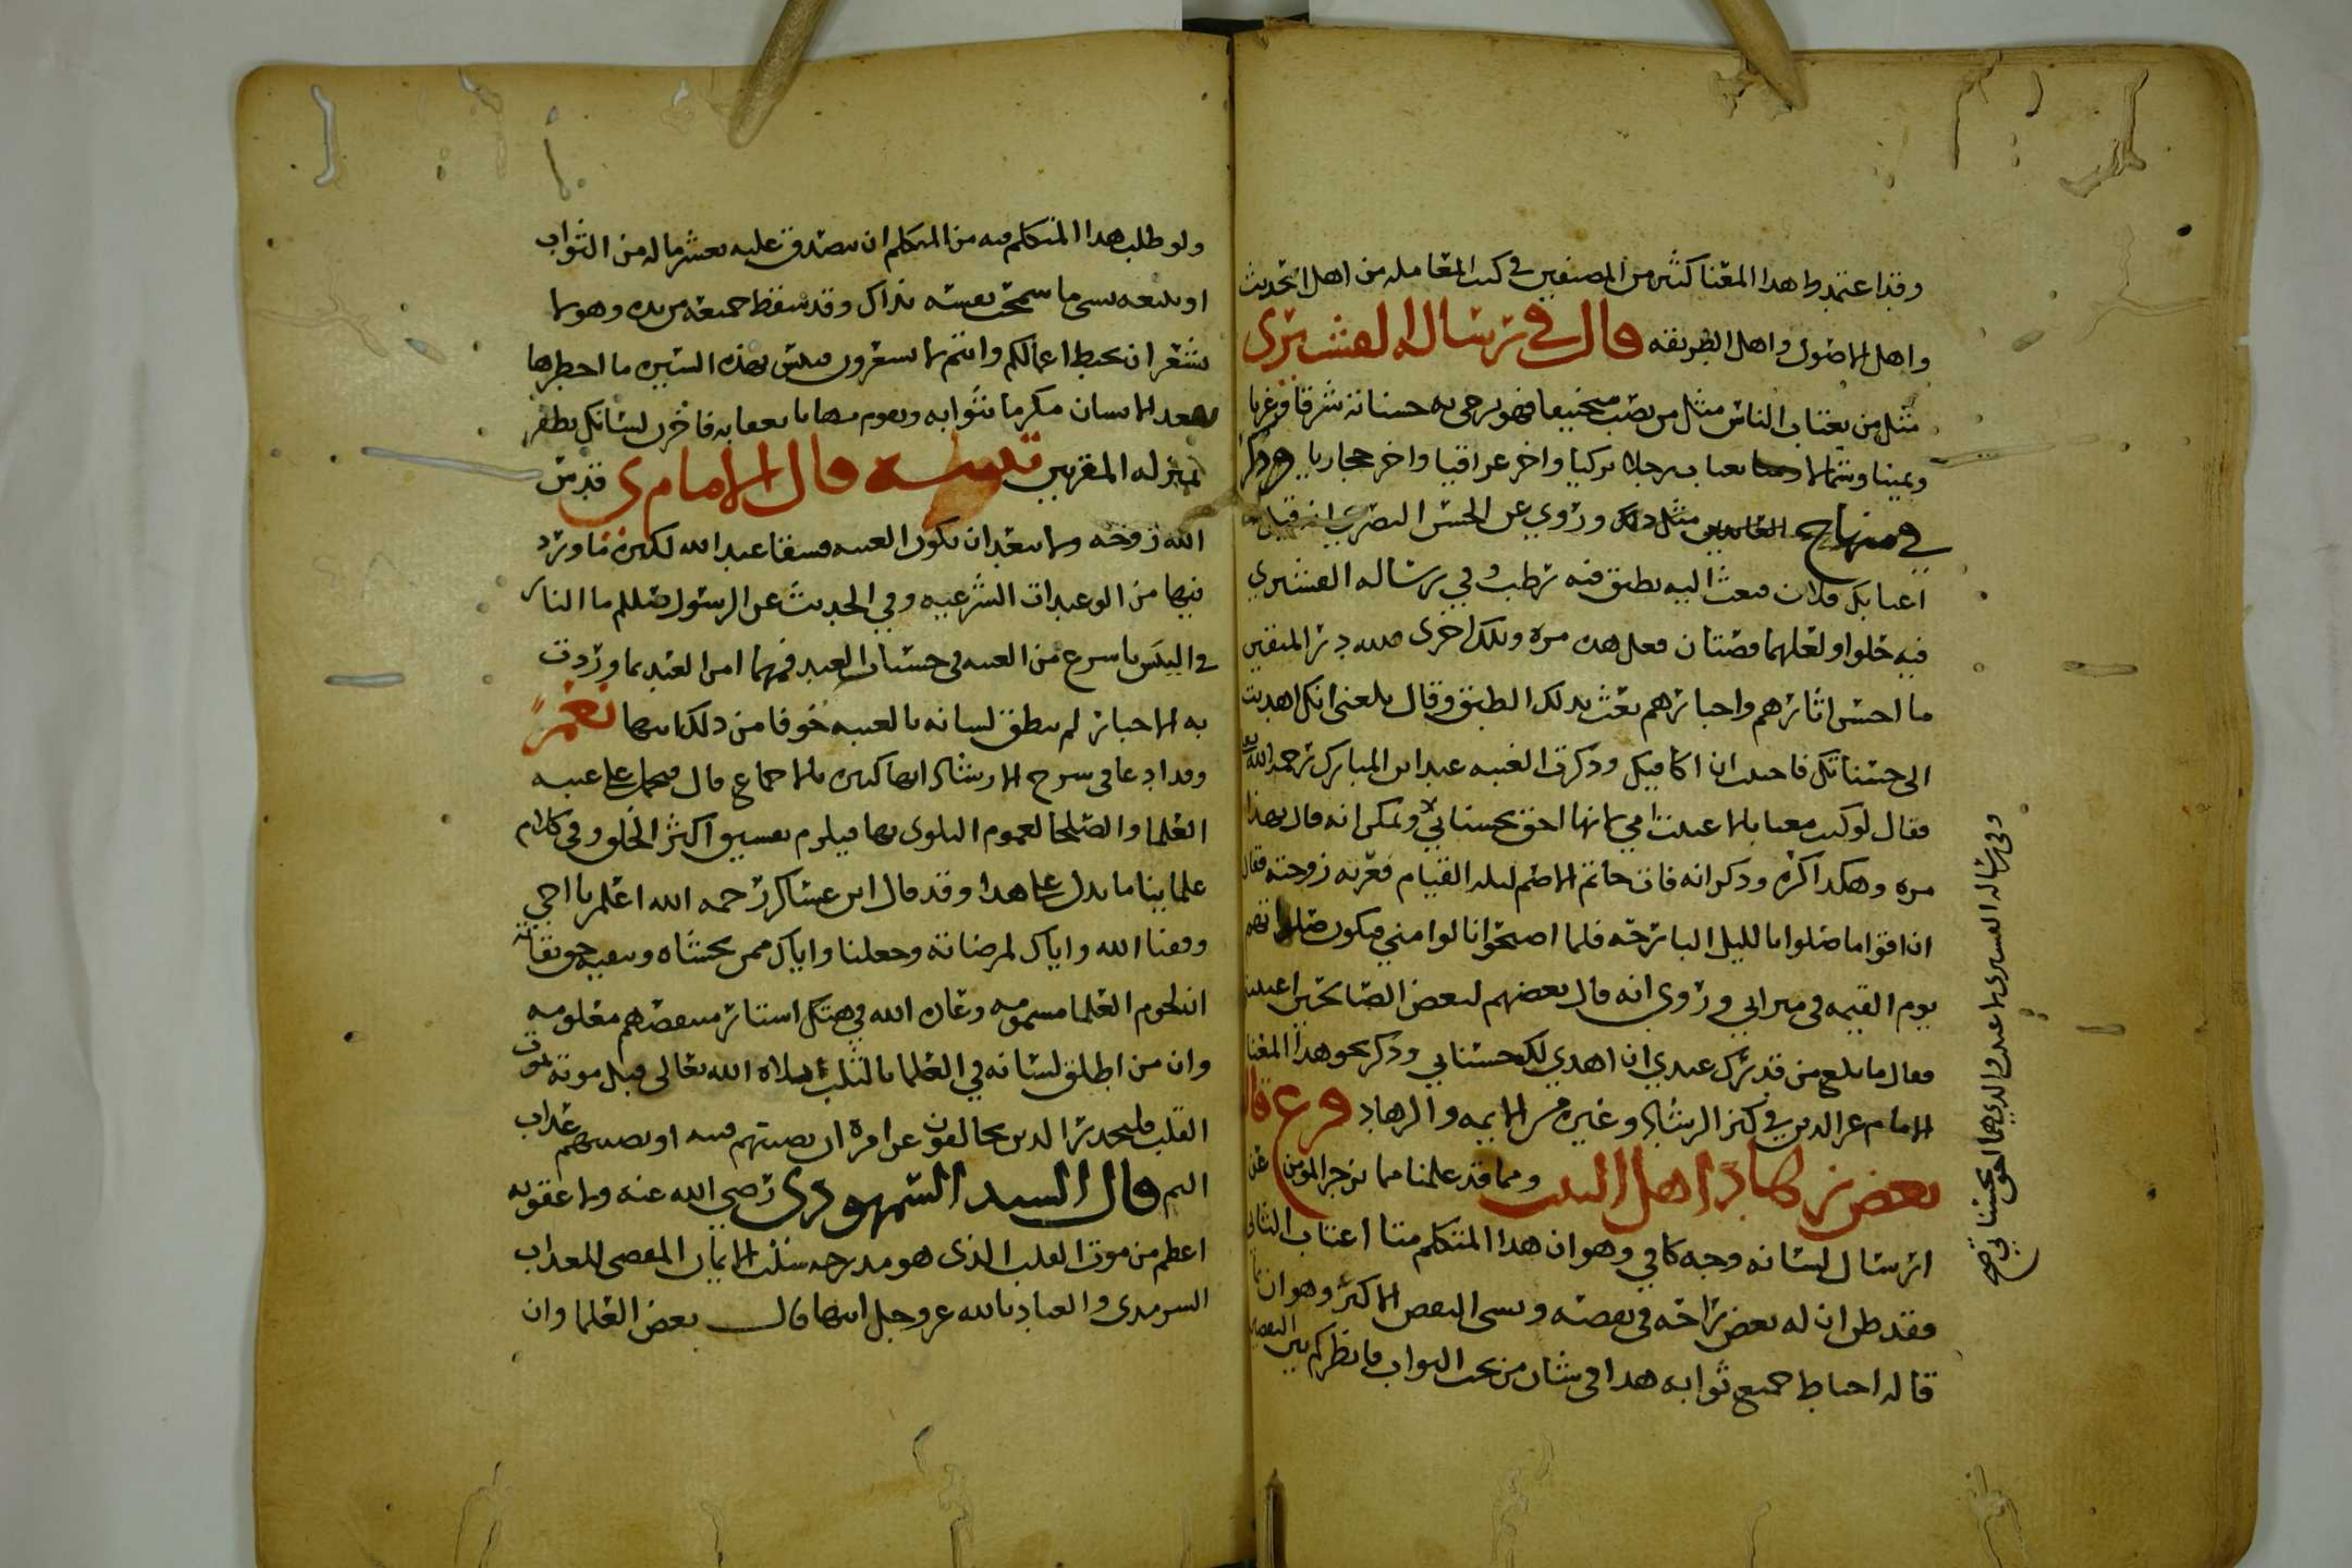 وقد اعتمد هذا المعنا كثير من المصنفين في كتب المعامله من اهل الحديث
واهل الاصول واهل الطريقه قال في رساله القشيري
مثل من يغتاب الناس مثل من نصب منجنيقا فهو يرمي به حسناته شرقا وغربا
ويمينا وشمالا يغتاب رجلا تركيا واخر عراقيا واخر حجازيا وذكر
في منهاج العابدين مثل ذلك وروي عن الحسن البصري انه قيل له
اغتابك فلان فبعث اليه بطبق فيه رطب وفي رساله القشيري
فيه حلوا ولعلهما قصتان فعل هذه مره وتلك اخرى فلله در المتقين
ما احسن اثارهم واخبارهم بعث بذلك الطبق وقال بلغني انك اهديت
الي حسناتك فاحببت ان اكافيك وذكرت الغيبه عند ابن المبارك رحمه الله
فقال لو كنت مغتابا لاغتبت امي لانها احق بحسناتي ويمكن انه قال بهذا
مره وهكذا اكثره وذكر انه فات حاتم الاصم ليله القيام فعزته زوجته فقال
ان اقواما صلوا بالليل البارحه فلما اصبحوا نالوا مني فيكون صلاتهم
يوم القيمه في ميزاني وروي انه قال بعضهم لبعض الصالحين اغتبتني
فقال ما بلغ من قدرك عندي ان اهدي لك حسناتي وذكر نحو هذا المعنا
الامام عز الدين في كنز الرشاد وغيره من الايمه والزهاد فرع قال
بعض زهاد اهل البيت ومما قد علمنا مما يزجر المومن عن
ارسال لسانه وجه كافي وهو ان هذا المتكلم متا اغتاب الثاني
فقد ظن ان له بعض راحه في بغضه ونسي البعض الاكثر وهو ان
قاله احباط جميع ثوابه هذا في شان من تحت الثواب فانظركم بين
وفي رساله القشيري لاغتبت والدي لانهما احق بحسناتي صح
ولو طلب هذا المتكلم فيه من المتكلم ان يصدق عليه بعشر ماله من الثواب
او يبيعه بشي ما سمحت نفسه بذاك وقد سقط جميعه من يده وهو لا
يشعر ان تحبط اعمالكم وانتم لا تشعرون فبئس بهذه السيره ما اخطرها
يقعد الانسان مكرما بثوابه ويقوم مهانا بعقابه فاخزن لسانك تظفر
بمنزله المقربين تنبيه قال الامام ي قدس
الله روحه ولا يبعد ان تكون الغيبه فسقا عند الله لكثره ما ورد
فيها من الوعيدات الشرعيه وفي الحديث عن الرسول صللم ما النار
في اليبس باسرع من الغيبه في حسنات العبد فمهما امن العبد بما وردت
به الاخبار لم ينطق لسانه بالغيبه خوفا من ذلك انتها نعم
وقد ادعا في شرح الارشاد انها كبيره بالاجماع قال فيحمل على غيبه
العلما والصلحا لعموم البلوى بها فيلزم تفسيق اكثر الخلق وفي كلام
علماينا ما يدل على هذا وقد قال ابن عساكر رحمه الله اعلم يا اخي
وفقنا الله واياك لمرضاته وجعلنا واياك ممن يخشاه ويتقيه حق تقاته
ان لحوم العلما مسمومه وعادت الله في هتك استار منتقصهم معلومه
وان من اطلق لسانه في العلما بالثلب بلاه الله تعالى قبل موته بموت
القلب فليحذر الذين يخالفون عن امره ان تصيبهم فتنه او يصيبهم عذاب
اليم قال السيد السمهودي رضي الله عنه ولا عقوبه
اعظم من موت القلب الذي هو مدرجه سلب الايمان المفضي للعذاب
السرمدي والعياذ بالله عز وجل انتها قال بعض العلما وان